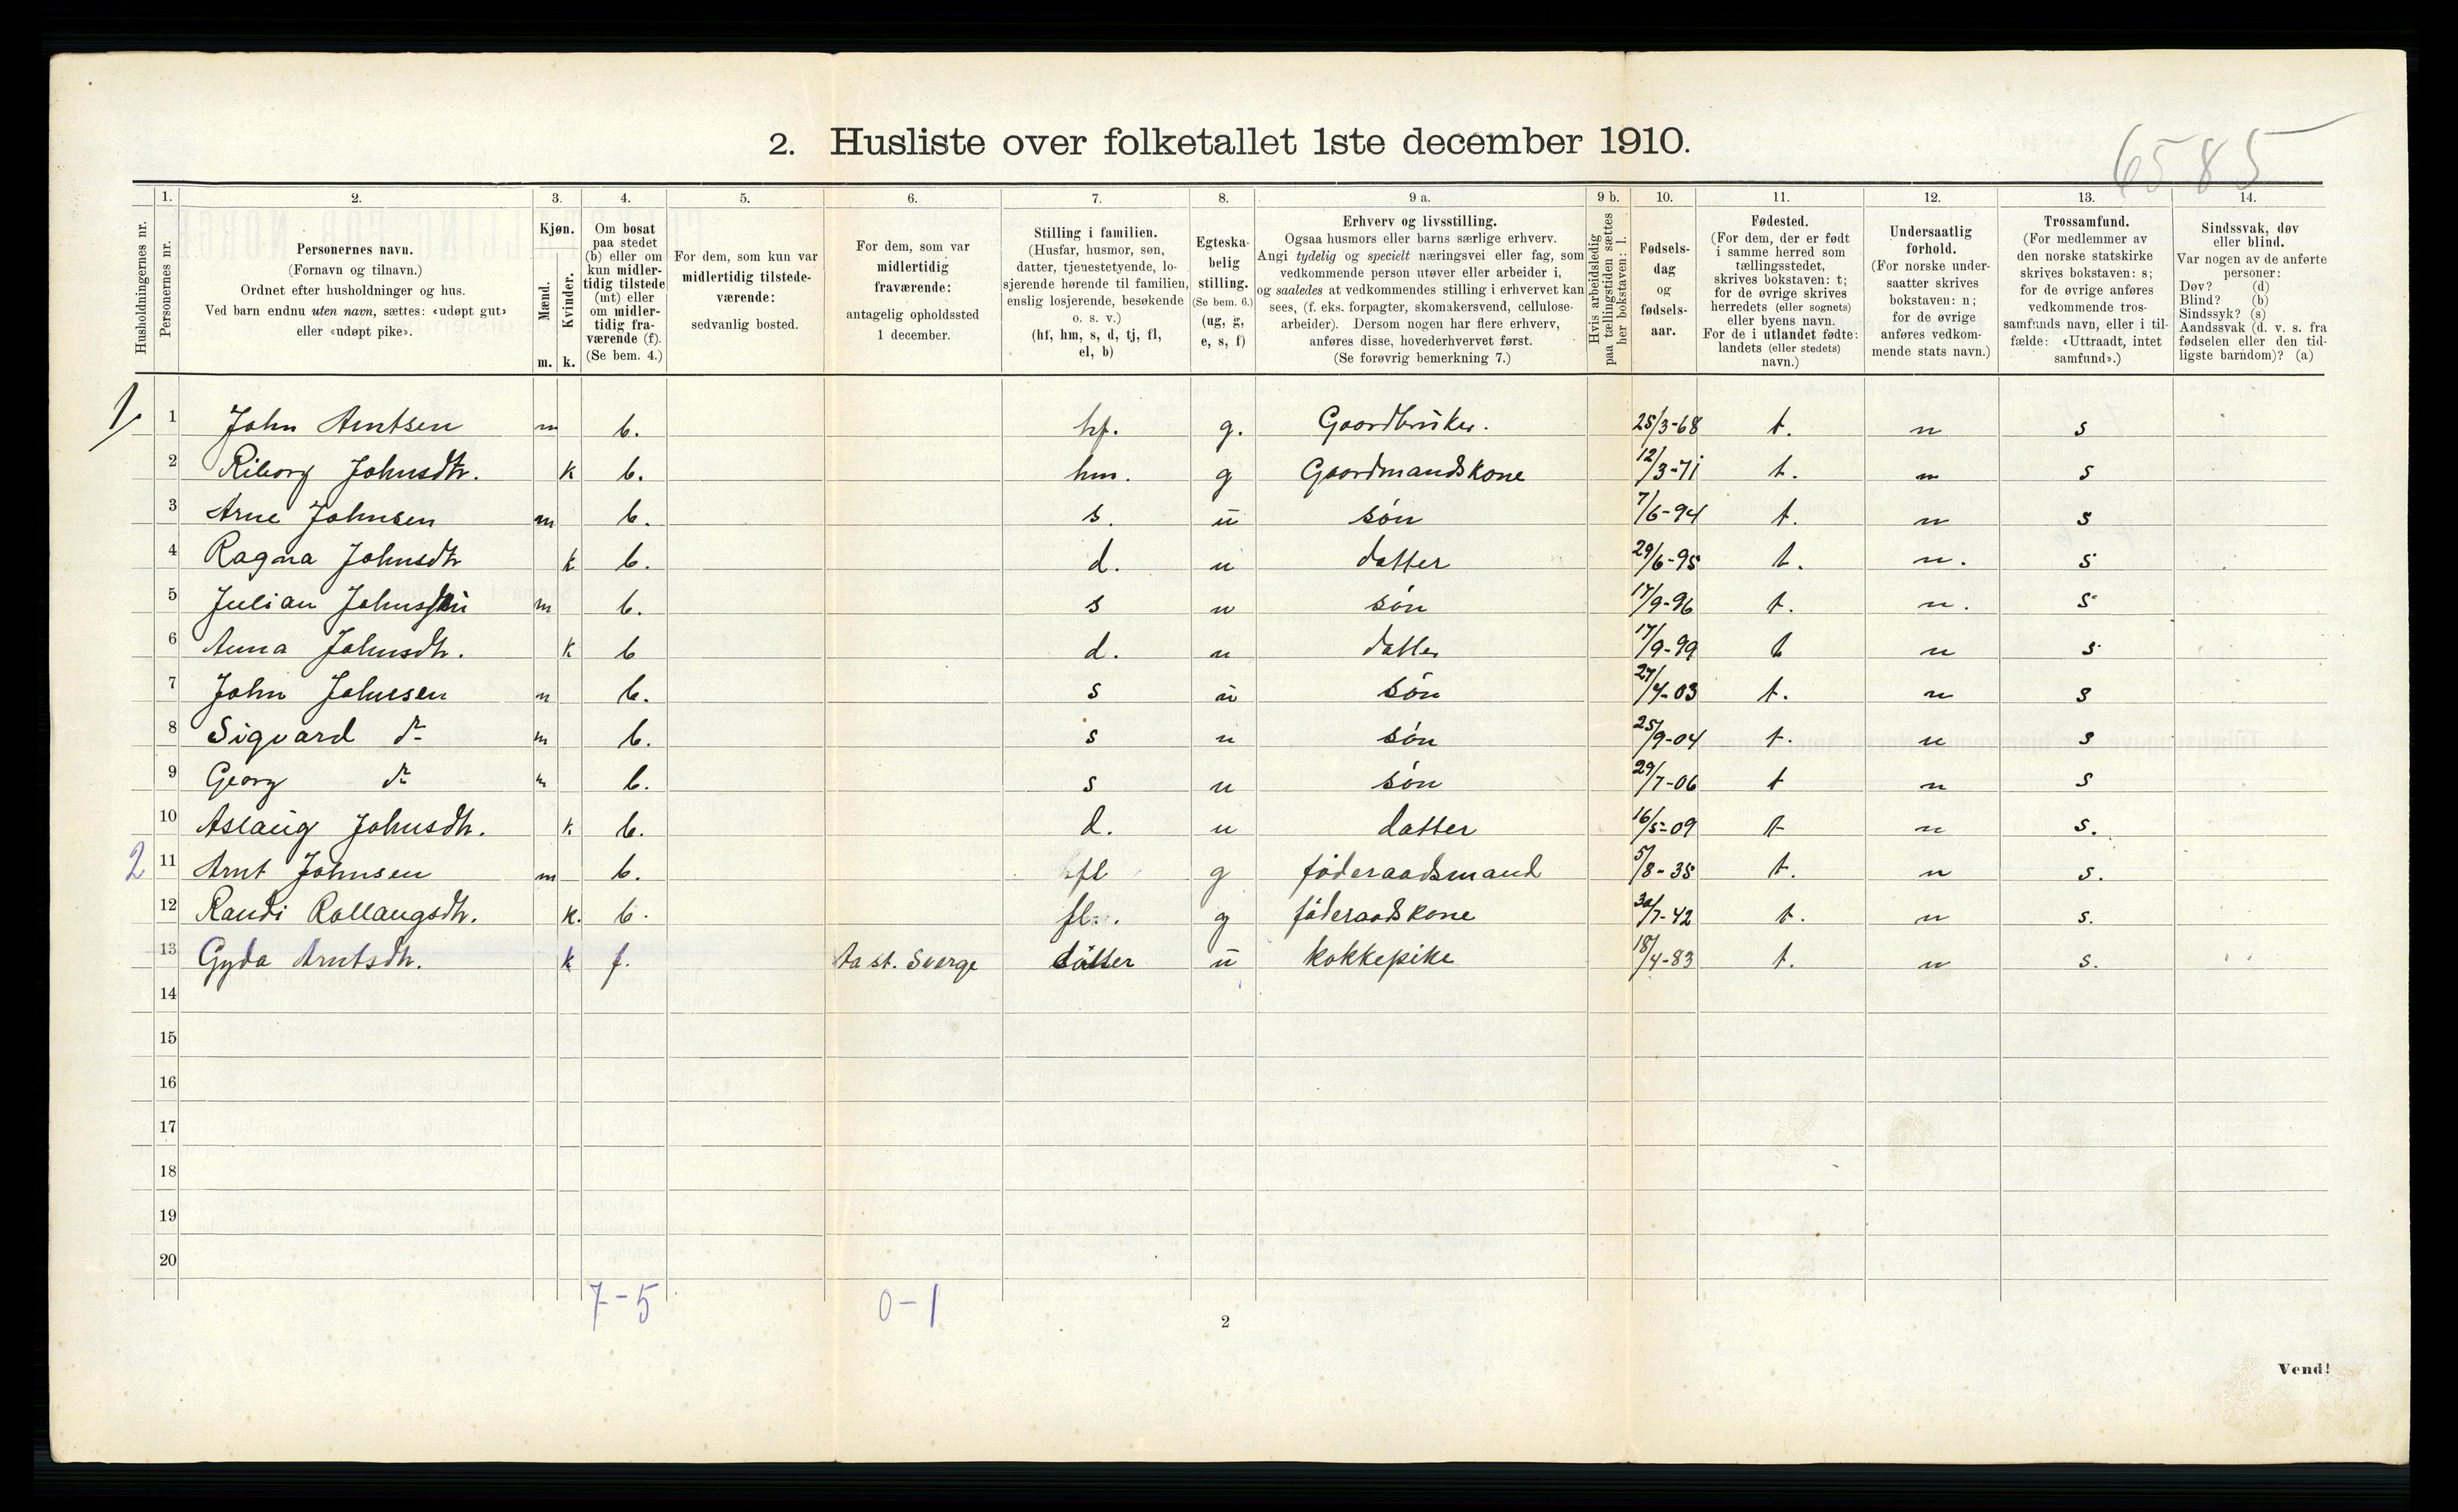 6585
2. Husliste over folketallet 1ste december 1910.
Husholdningernes nr.
1.
Personernes nr.
2.
Personernes navn.
(Fornavn og tilnavn.)
Ordnet efter husholdninger og hus.
Ved barn endnu uten navn, sættes: «udøpt gut»
eller «udøpt pike».
3.
Kjøn.
Mænd.
m.
Kvinder.
k.
4.
Om bosat
paa stedet
(b) eller om
kun midler-
tidig tilstede
(mt) eller
om midler-
tidig fra-
værende (f).
(Se bem. 4.)
5.
For dem, som kun var
midlertidig tilstede-
værende:
sedvanlig bosted.
6.
For dem, som var
midlertidig
fraværende:
antagelig opholdssted
1 december.
7.
Stilling i familien.
(Husfar, husmor, søn,
datter, tjenestetyende, lo-
sjerende hørende til familien,
enslig losjerende, besøkende
o. s. v.)
(hf, hm, s, d, tj, fl,
el, b)
8.
Egteska-
belig
stilling.
(Se bem. 6.)
(ug, g,
e, s, f)
9 a.
Erhverv og livsstilling.
Ogsaa husmors eller barns særlige erhverv.
Angi tydelig og specielt næringsvei eller fag, som
vedkommende person utøver eller arbeider i,
og saaledes at vedkommendes stilling i erhvervet kan
sees, (f. eks. forpagter, skomakersvend, cellulose-
arbeider). Dersom nogen har flere erhverv,
anføres disse, hovederhvervet først.
(Se forøvrig bemerkning 7.)
9 b.
Hvis arbeidsledig
paa tællingstiden sættes
her bokstaven: l.
10.
Fødsels-
dag
og
fødsels-
aar.
11.
Fødested.
(For dem, der er født
i samme herred som
tællingsstedet,
skrives bokstaven: t;
for de øvrige skrives
herredets (eller sognets)
eller byens navn.
For de i utlandet fødte:
landets (eller stedets)
navn.)
12.
Undersaatlig
forhold.
(For norske under-
saatter skrives
bokstaven: n;
for de øvrige
anføres vedkom-
mende stats navn.)
13.
Trossamfund.
(For medlemmer av
den norske statskirke
skrives bokstaven: s;
for de øvrige anføres
vedkommende tros-
samfunds navn, eller i til-
fælde: «Uttraadt, intet
samfund».)
14.
Sindssvak, døv
eller blind.
Var nogen av de anførte
personer:
Døv? (d)
Blind? (b)
Sindssyk? (s)
Aandssvak (d. v. s. fra
fødselen eller den tid-
ligste barndom)? (a)
1 1 John Arntsen m b. hf. g. Gaardbruker. 25/3-68 t. n s
2 Riborg Johnsdtr. k b. hm. g Gaardmandskone 12/3-71 t. n s
3 Arne Johnsen m b. s. u søn 7/6-94 t. n s
4 Ragna Johnsdtr k b. d. u datter 29/6-95 t. n. s
5 Julian Johnsen m b. s u søn 17/9-96 t. n. s
6 Anna Johnsdtr. k b d. u datter 17/9-99 t n s
7 John Johnsen m b. s u søn 27/4-03 t. n s
8 Sigvard do m b. s u søn 25/9-04 t. n s
9 Georg do m b. s u søn 29/7-06 t n s
10 Aslaug Johnsdtr. k. b. d. u datter 16/5-09 t n s.
2 11 Arnt Johnsen m b. fl g føderaadsmand 5/8-35 t. n s.
12 Randi Rollaugsdtr. k. b. g føderaadskone 30/7-42 t. n s.
13 Gyda Arntsdtr. k f. Aa st. Sverge datter u kokkepike 18/4-83 t. n s.
14
15
16
17
18
19
20
7-5 0-1
2
Vend!